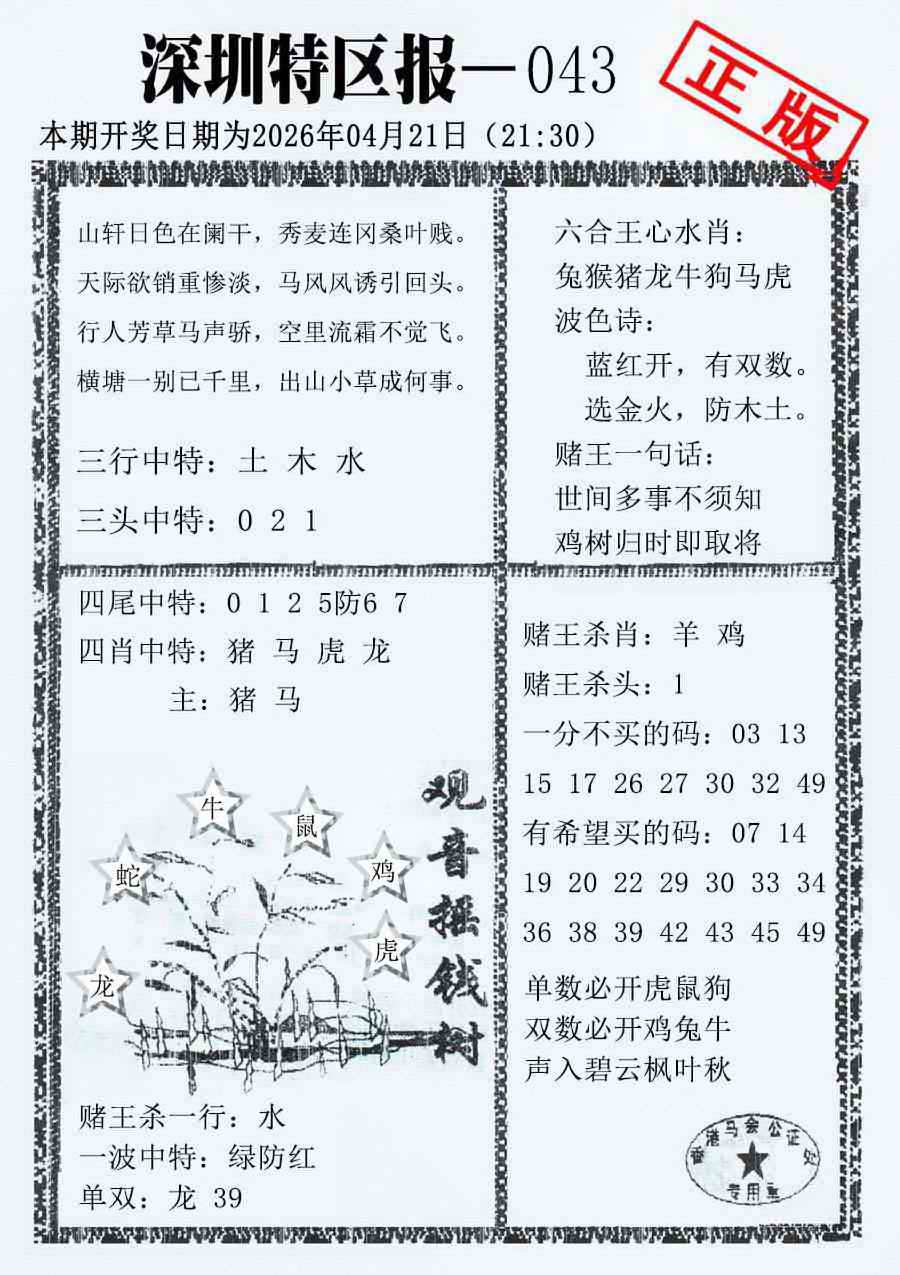 深圳特区报－043
正版
本期开奖日期为2026年04月21日（21:30）
山轩日色在阑干，秀麦连冈桑叶贱。
天际欲销重惨淡，马风风诱引回头。
行人芳草马声骄，空里流霜不觉飞。
横塘一别已千里，出山小草成何事。
三行中特：土 木 水
三头中特：0 2 1
六合王心水肖：
兔猴猪龙牛狗马虎
波色诗：
蓝红开，有双数。
选金火，防木土。
赌王一句话：
世间多事不须知
鸡树归时即取将
四尾中特：0 1 2 5防6 7
四肖中特：猪 马 虎 龙
主：猪 马
牛
鼠
蛇
鸡
虎
龙
观音摇钱树
赌王杀一行：水
一波中特：绿防红
单双：龙 39
赌王杀肖：羊 鸡
赌王杀头：1
一分不买的码：03 13
15 17 26 27 30 32 49
有希望买的码：07 14
19 20 22 29 30 33 34
36 38 39 42 43 45 49
单数必开虎鼠狗
双数必开鸡兔牛
声入碧云枫叶秋
香港马会公证处
专用章